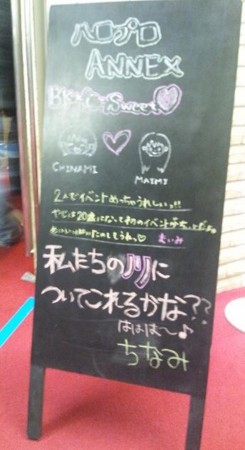 ハロプロ
ANNEX
Sweet♡
CHINAMI MAIMI
2人でイベントめっちゃうれしいっ!!
20歳になって初のイベント
まいみ
私たちのノリに
ついてこれるかな??
ははは〜♪
ちなみ